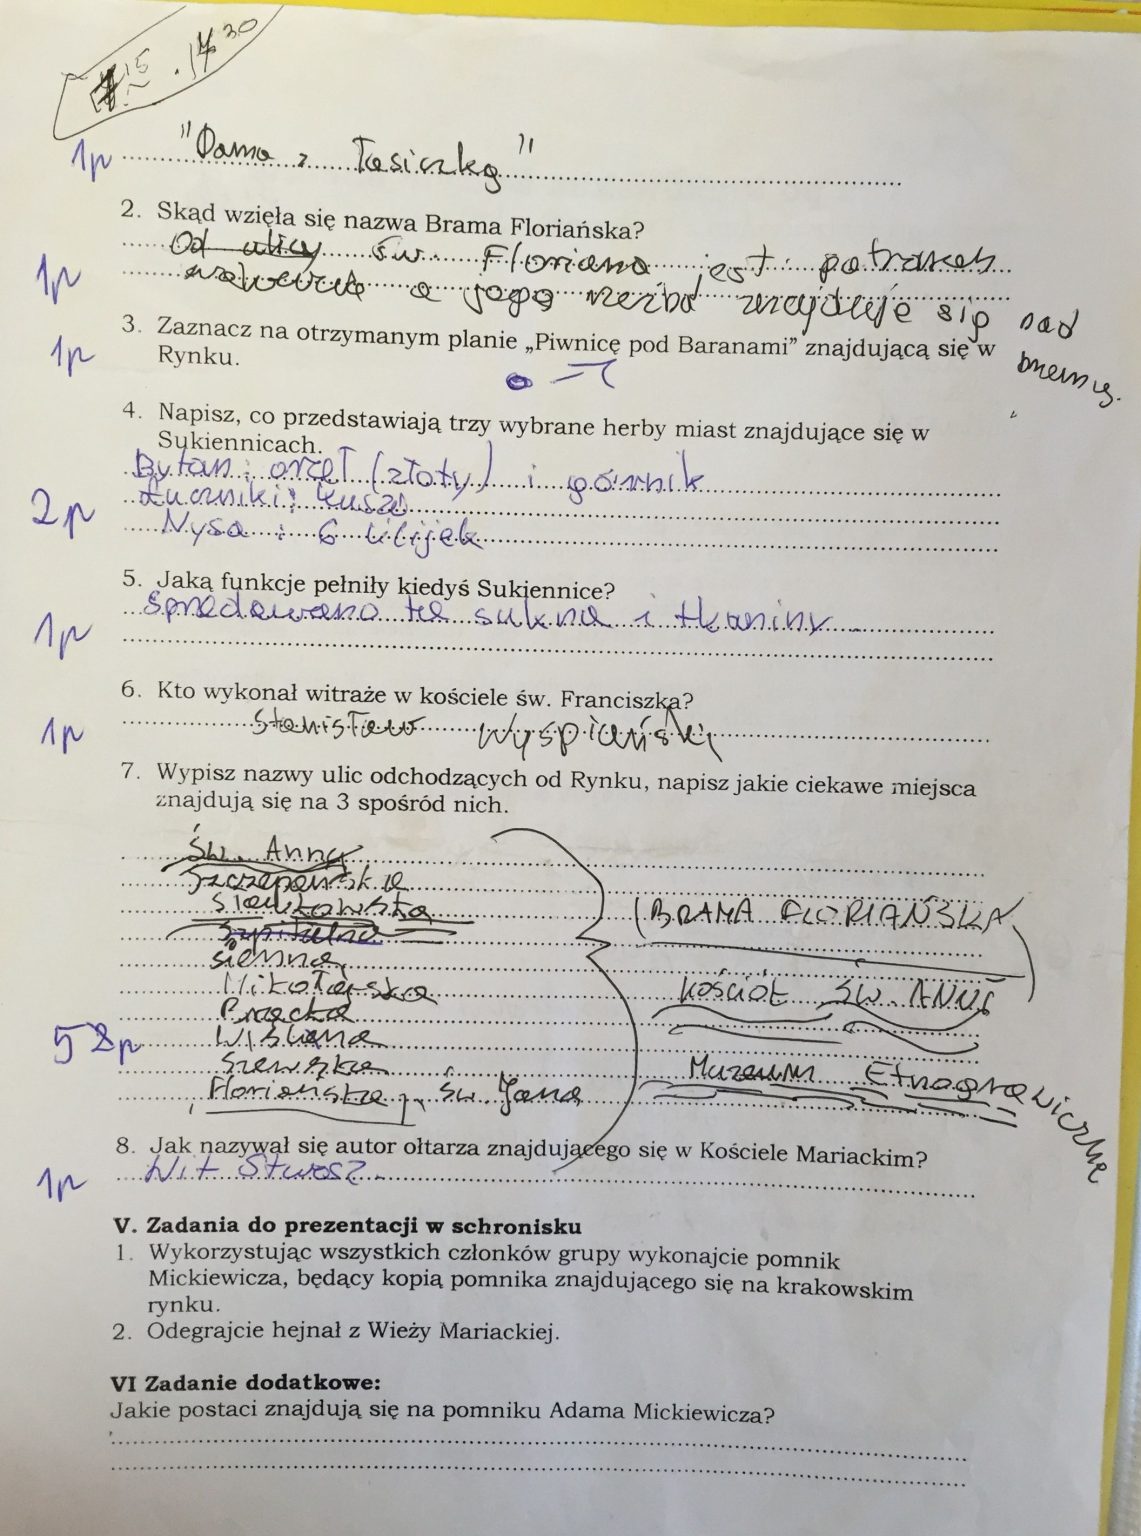 15 . 17 30
1p "Dama z łasiczką"
2. Skąd wzięła się nazwa Brama Floriańska?
Od ulicy św. Floriana jest patronem
1p a jego rzeźba znajduje się nad
bramą.
3. Zaznacz na otrzymanym planie „Piwnicę pod Baranami” znajdującą się w
1p Rynku.
4. Napisz, co przedstawiają trzy wybrane herby miast znajdujące się w
Sukiennicach.
Bytom: orzeł (złoty) i górnik
2p kusza
Nysa : 6 lilijek
5. Jaką funkcje pełniły kiedyś Sukiennice?
1p Sprzedawano tu sukna i tkaniny
6. Kto wykonał witraże w kościele św. Franciszka?
1p Stanisław Wyspiański
7. Wypisz nazwy ulic odchodzących od Rynku, napisz jakie ciekawe miejsca
znajdują się na 3 spośród nich.
Św. Anny
Szczepańska
Sławkowska (BRAMA FLORIAŃSKA
Szpitalna
Sienna
Mikołajska KOŚCIÓŁ ŚW. ANNY
Bracka
5 8p Wiślana
Szewska Muzeum Etnograwiczne
Floriańska, św. Jana
8. Jak nazywał się autor ołtarza znajdującego się w Kościele Mariackim?
1p Wit Stwosz
V. Zadania do prezentacji w schronisku
1. Wykorzystując wszystkich członków grupy wykonajcie pomnik
Mickiewicza, będący kopią pomnika znajdującego się na krakowskim
rynku.
2. Odegrajcie hejnał z Wieży Mariackiej.
VI Zadanie dodatkowe:
Jakie postaci znajdują się na pomniku Adama Mickiewicza?